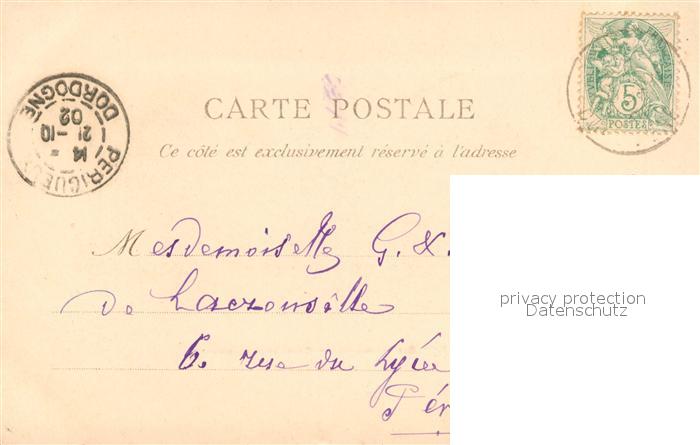 5
POSTES
PERIGUEUX
14
21-10
02
DORDOGNE
CARTE POSTALE
Ce côté est exclusivement réservé à l'adresse
Mesdemoiselles G. &
de
6. rue du Lycée
Pér
privacy protection
Datenschutz